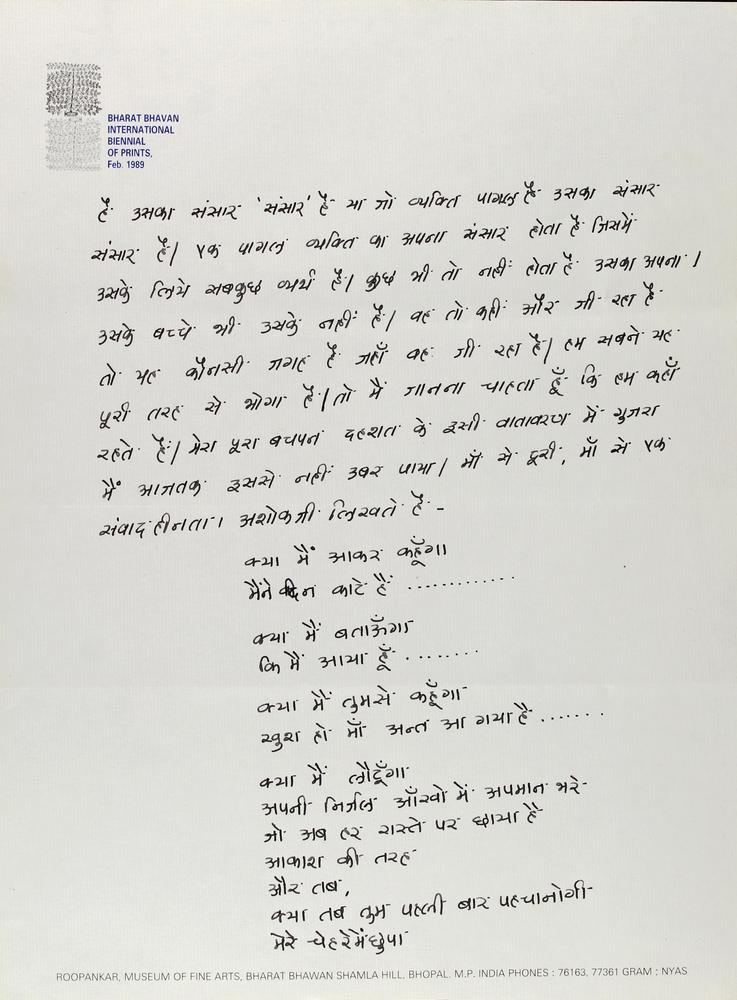 BHARAT BHAVAN
INTERNATIONAL
BIENNIAL
OF PRINTS,
Feb. 1989
है उसका संसार 'संसार' है या जो व्यक्ति पागल है उसका संसार
संसार है। एक पागल व्यक्ति का अपना संसार होता है जिसमें
उसके लिये सबकुछ व्यर्थ है। कुछ भी तो नहीं होता है उसका अपना।
उसके बच्चे भी उसके नहीं है। वह तो कहीं और जी रहा है
तो यह कौनसी जगह है जहाँ वह जी रहा है। हम सबने यह
पूरी तरह से भोगा है। तो मैं जानना चाहता हूँ कि हम कहाँ
रहते हैं। मेरा पूरा बचपन दहशत के इसी वातावरण में गुजरा
मैं आजतक इससे नहीं उबर पाया। माँ से दूरी, माँ से एक
संवादहीनता। अशोकजी लिखते है -
क्या मैं आकर कहूँगा
मैंने दिन काटे हैं ............
क्या मैं बताऊँगा
कि मैं आया हूँ ........
क्या मैं तुमसे कहूँगा
खुश हो माँ अन्त आ गया है .......
क्या मैं लौटूँगा
अपनी निर्जल आँखों में अपमान भरे
जो अब हर रास्ते पर छाया है
आकाश की तरह
और तब,
क्या तब तुम पहली बार पहचानोगी
मेरे चेहरे में छुपा
ROOPANKAR, MUSEUM OF FINE ARTS, BHARAT BHAWAN SHAMLA HILL, BHOPAL. M.P. INDIA PHONES : 76163, 77361 GRAM : NYAS